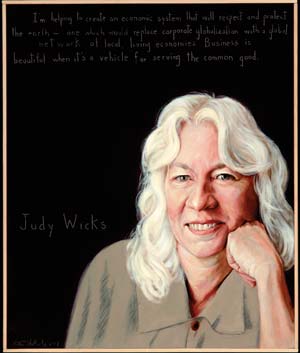 I'm helping to create an economic system that will respect and protect
the earth – one which would replace corporate globalization with a global
network of local living economies. Business is
beautiful when it's a vehicle for serving the common good.
Judy Wicks